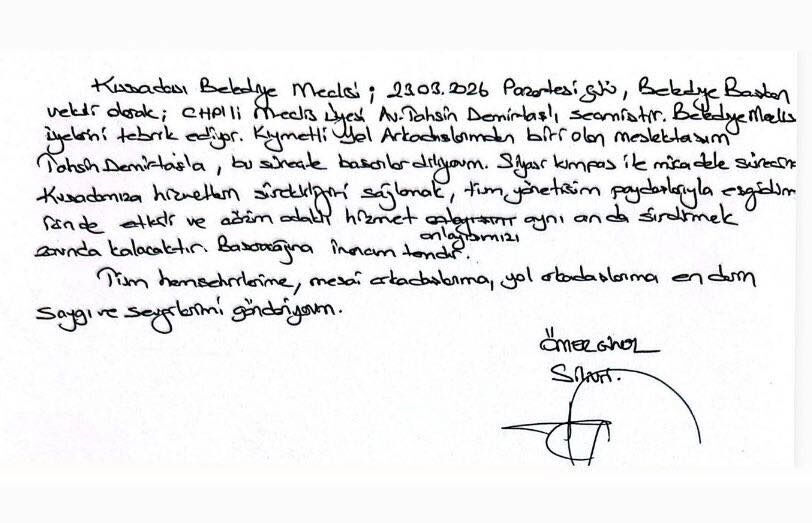 Kuşadası Belediye Meclisi; 23.03.2026 Pazartesi günü, Belediye Başkan
vekili olarak; CHP'li Meclis üyesi Av. Tahsin Demirtaş'ı seçmiştir. Belediye Meclis
üyelerini tebrik ediyor. Kıymetli Yol Arkadaşlarımdan biri olan meslektaşım
Tahsin Demirtaş'a, bu süreçte başarılar diliyorum. Siyasi kumpas ile mücadele sürecim
Kuşadamıza hizmetlerin sürekliliğini sağlamak, tüm yönetişim paydaşlarıyla eşgüdüm
içinde etkili ve çözüm odaklı hizmet anlayışımızı aynı anda sürdürmek
zorunda kalacaktır. Başaracağına inancım tamdır.
Tüm hemşehrilerime, mesai arkadaşlarıma, yol arkadaşlarıma en derin
saygı ve sevgilerimi gönderiyorum.
ÖMER GÜNEL
Silivri.